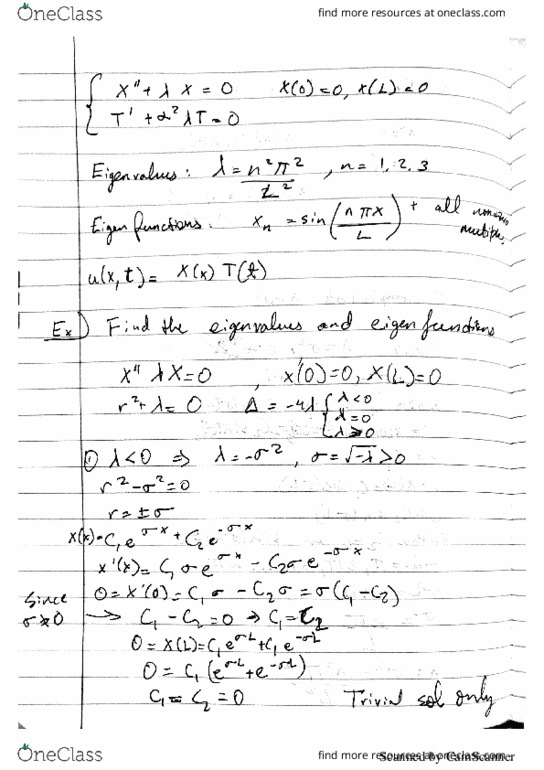 OneClass find more resources at oneclass.com
X'' + λ X = 0 X(0) = 0, X(L) = 0
T' + α² λT = 0
Eigenvalues: λ = n²π²/L² , n = 1, 2, 3
Eigen functions: Xₙ = sin(nπx/L) + all
u(x, t) = X(x) T(t)
Ex) Find the eigenvalues and eigen functions
X'' λX = 0 , X'(0) = 0, X(L) = 0
r² + λ = 0 Δ = -4λ { λ < 0
λ = 0
λ > 0
① λ < 0 ⇒ λ = -σ² , σ = √-λ > 0
r² - σ² = 0
r = ± σ
X(x) = C₁ e^σx + C₂ e^-σx
X'(x) = C₁ σ e^σx - C₂ σ e^-σx
0 = X'(0) = C₁ σ - C₂ σ = σ(C₁ - C₂)
Since σ ≠ 0 → C₁ - C₂ = 0 ⇒ C₁ = C₂
0 = X(L) = C₁ e^σL + C₁ e^-σL
0 = C₁ (e^σL + e^-σL)
C₁ = C₂ = 0 Trivial sol only
OneClass find more resources at oneclass.com
Scanned by CamScanner